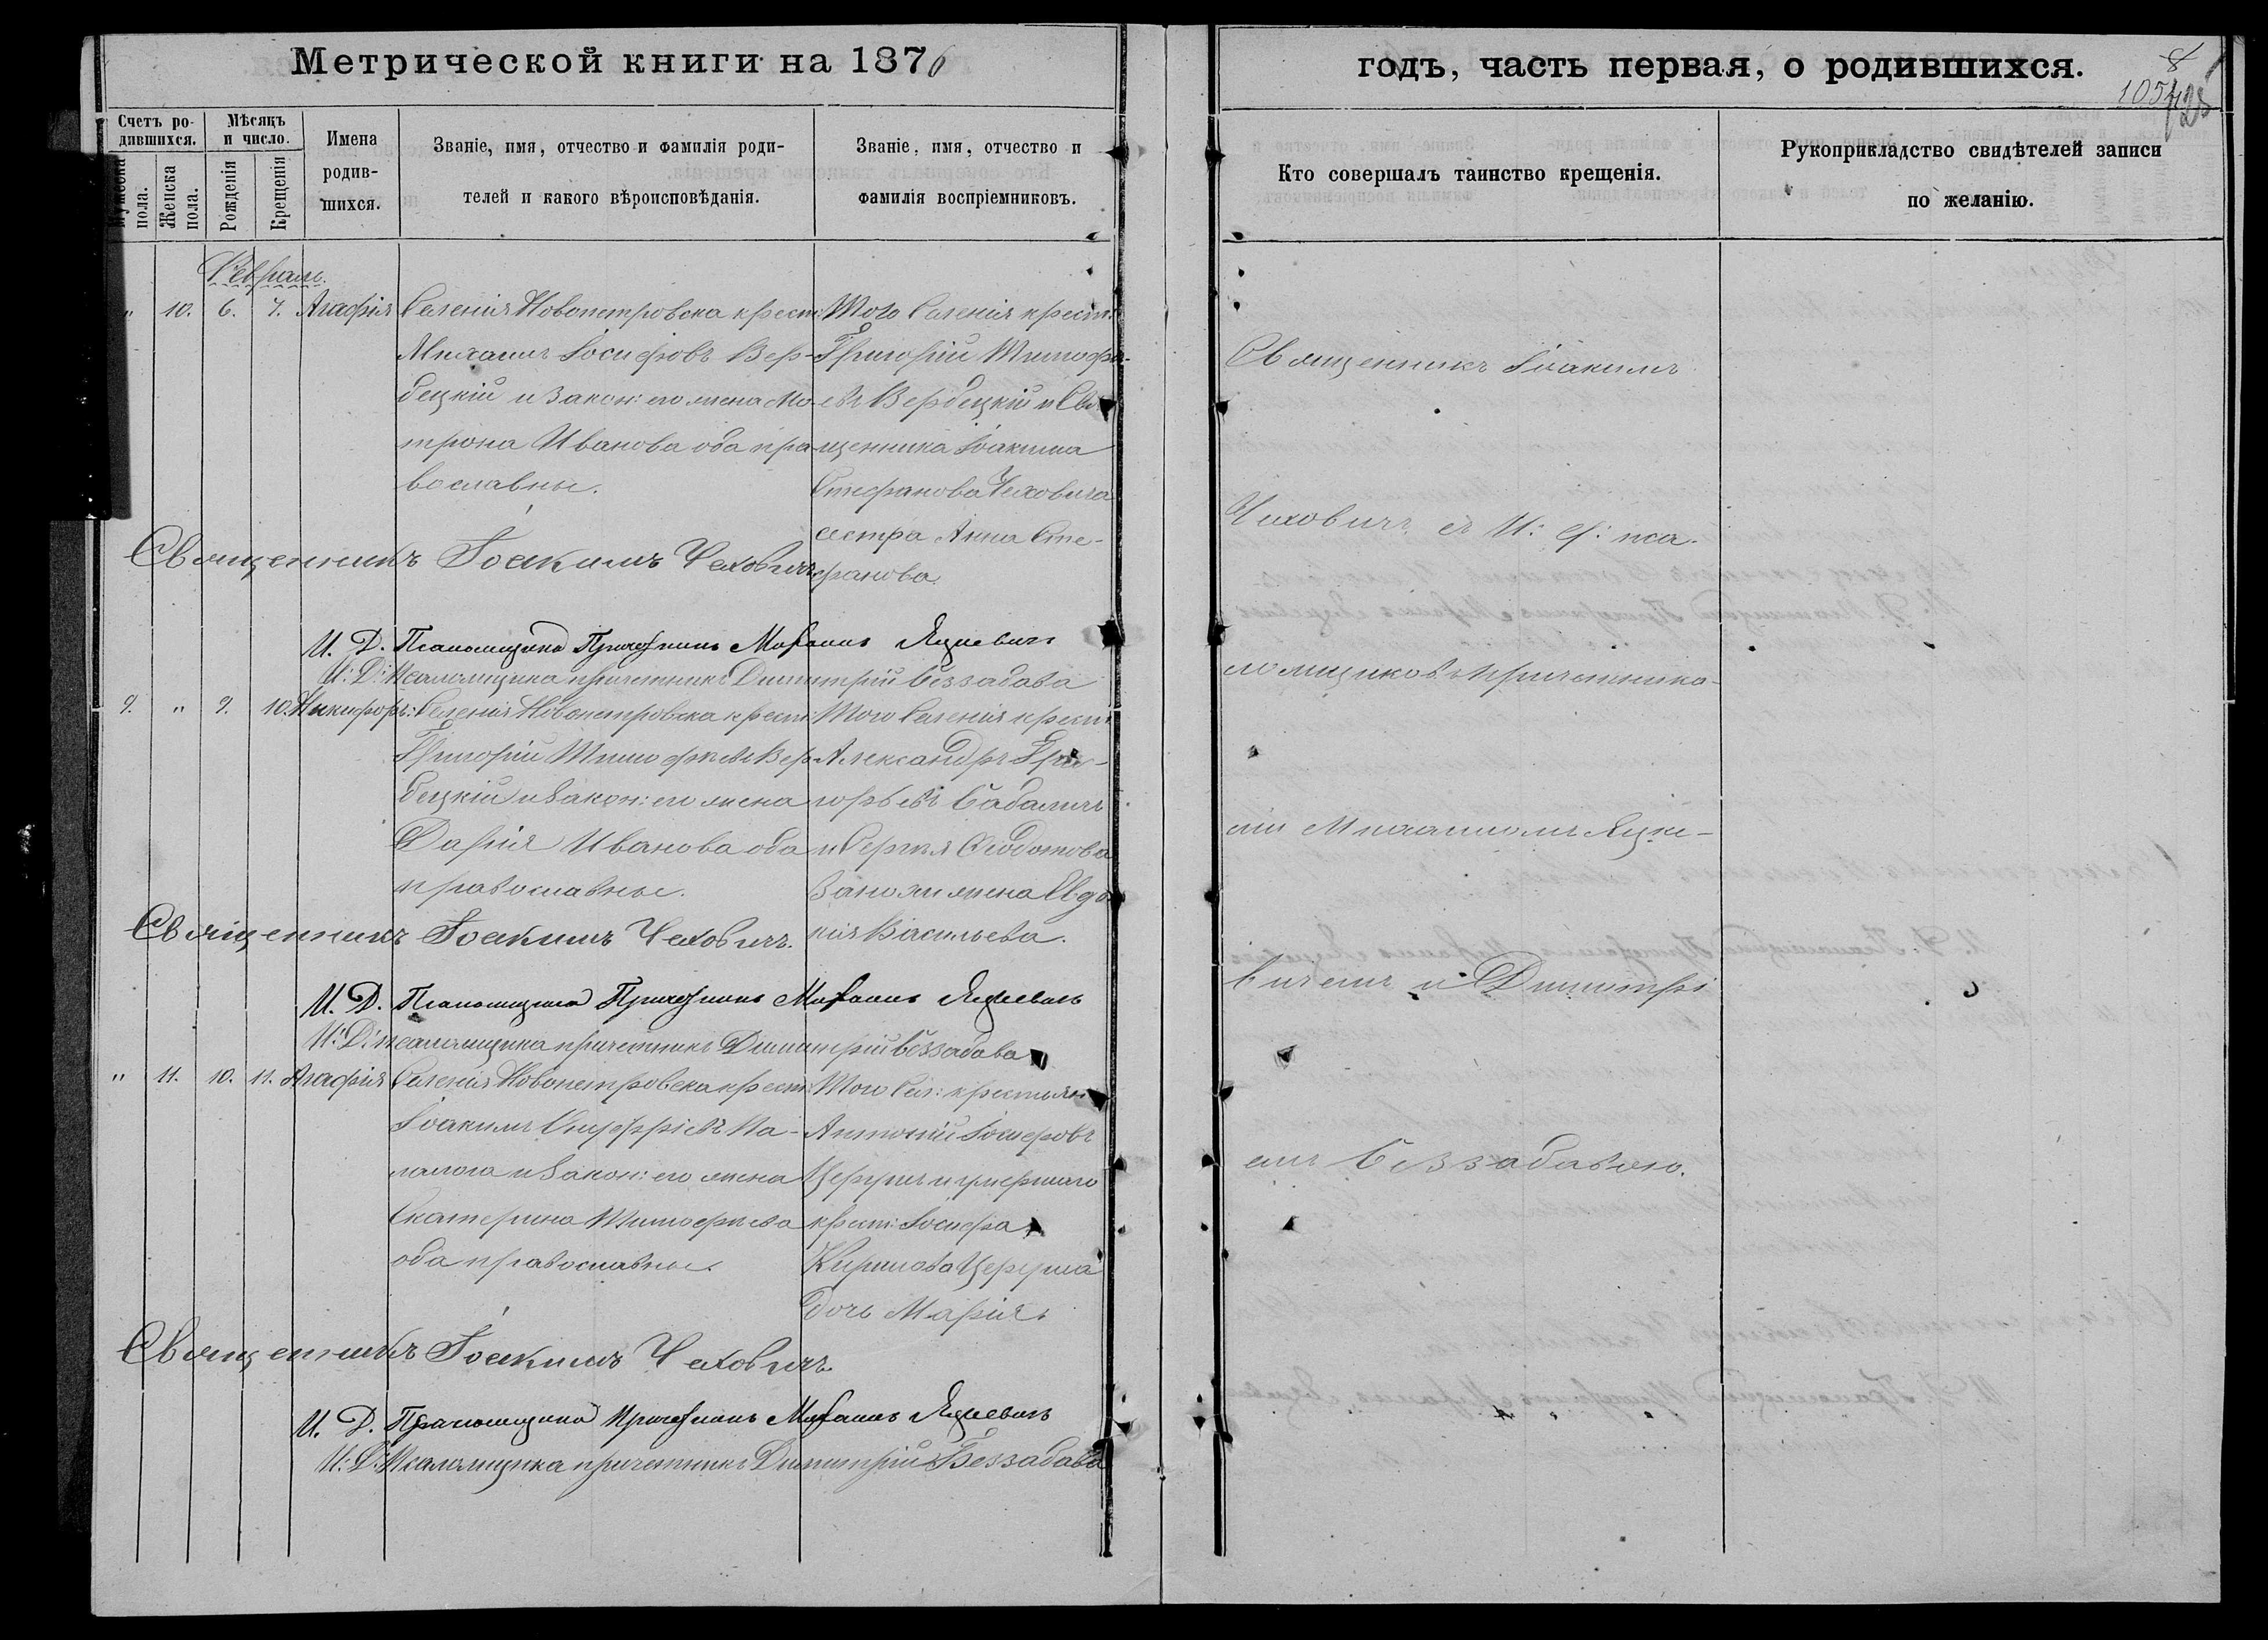 Метрической книги на 1876
годъ, часть первая, о родившихся.
8
105
Счетъ ро-
дившихся.
Мужеска
пола.
Женска
пола.
Мѣсяцъ
и число.
Рожденія
Крещенія
Имена
родив-
шихся.
Званіе, имя, отчество и фамилія роди-
телей и какого вѣроисповѣданія.
Званіе, имя, отчество и
фамилія воспріемниковъ.
Кто совершалъ таинство крещенія.
Рукоприкладство свидѣтелей записи
по желанію.
Февраль.
" 10. 6. 7. Агафія
Селенія Новопетровска крест:
Михаилъ Іосифовъ Вер-
бецкій и закон: его жена Мо-
трона Иванова оба пра-
вославные.
Того Селенія крест:
Григорій Тимофе-
евъ Вербецкій и Свя-
щенника Іоакима
Стефанова Чеховича
сестра Анна Сте-
фанова.
Священникъ Іоакимъ Чеховичъ
И. Д. Псаломщика Причетникъ Михаилъ Яцкевичъ
И: Д: Псаломщика причетникъ Димитрій Беззабава
9. " 9. 10. Никифоръ:
Селенія Новопетровска крест:
Григорій Тимофѣевъ Вер
бецкій и закон: его жена
Дарія Иванова оба
православные.
Того Селенія крест:
Александръ Гри-
горьевъ Бабаличъ
и Сергѣя Ѳедотова
жена Евдо
кія Васильева.
Священникъ Іоакимъ Чеховичъ.
И. Д. Псаломщика Причетникъ Михаилъ Яцкевичъ
И: Д: псаломщика причетникъ Димитрій Беззабава
" 11. 10. 11. Агафія
Селенія Новопетровска крест:
Іоакимъ Онуфріевъ Па-
и закон: его жена
Екатерина Тимофѣева
оба православные.
Того Сел: крестьян
Антоній Іосифовъ
и умершаго
крест: Іосифа
Кирилова
дочь Марія.
Священникъ Іоакимъ Чеховичъ.
И. Д. Псаломщика Причетникъ Михаилъ Яцкевичъ
И: Д: Псаломщика причетникъ Димитрій Беззабава
Священникъ Іоакимъ
Чеховичъ съ И: д: пса-
ломщиковъ причетника-
ми Михаиломъ Яцке-
вичемъ и Димитрі
емъ Беззабавою.